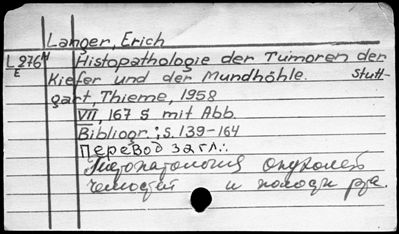 Langer, Erich
L276N Histopathologie der Tumoren der
E Kiefer und der Mundhöhle. Stutt-
gart, Thieme, 1958
VII, 167 S mit Abb.
Bibliogr.: S. 139-164
Перевод загл.:
Гистопатология опухолей
челюстей и полости рта.